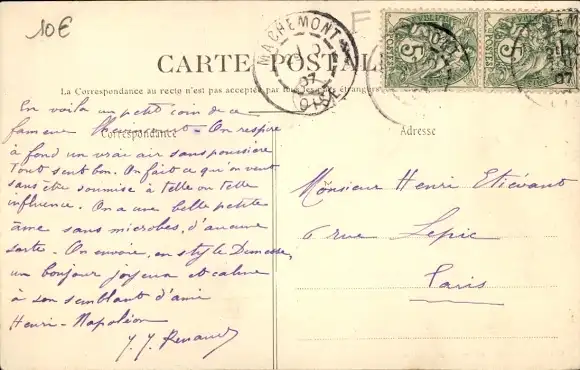 10€
MACHEMONT
07
OISE
5
5
CARTE POSTALE
La Correspondance au recto n'est pas acceptée par tous les pays étrangers
Correspondance
En voilà un petit coin de ce
fameux On respire
à fond un vrai air sans poussière
Tout sent bon. On fait ce qu'on veut
sans être soumise à telle ou telle
influence. On a une belle petite
âme sans microbes, d'aucune
sorte. On envoie, en style
un bonjour joyeux et calme
à son semblant d'ami
Henri-Napoléon
J. J. Renaud
Adresse
Monsieur Henri Etiévant
6 rue Lepic
Paris